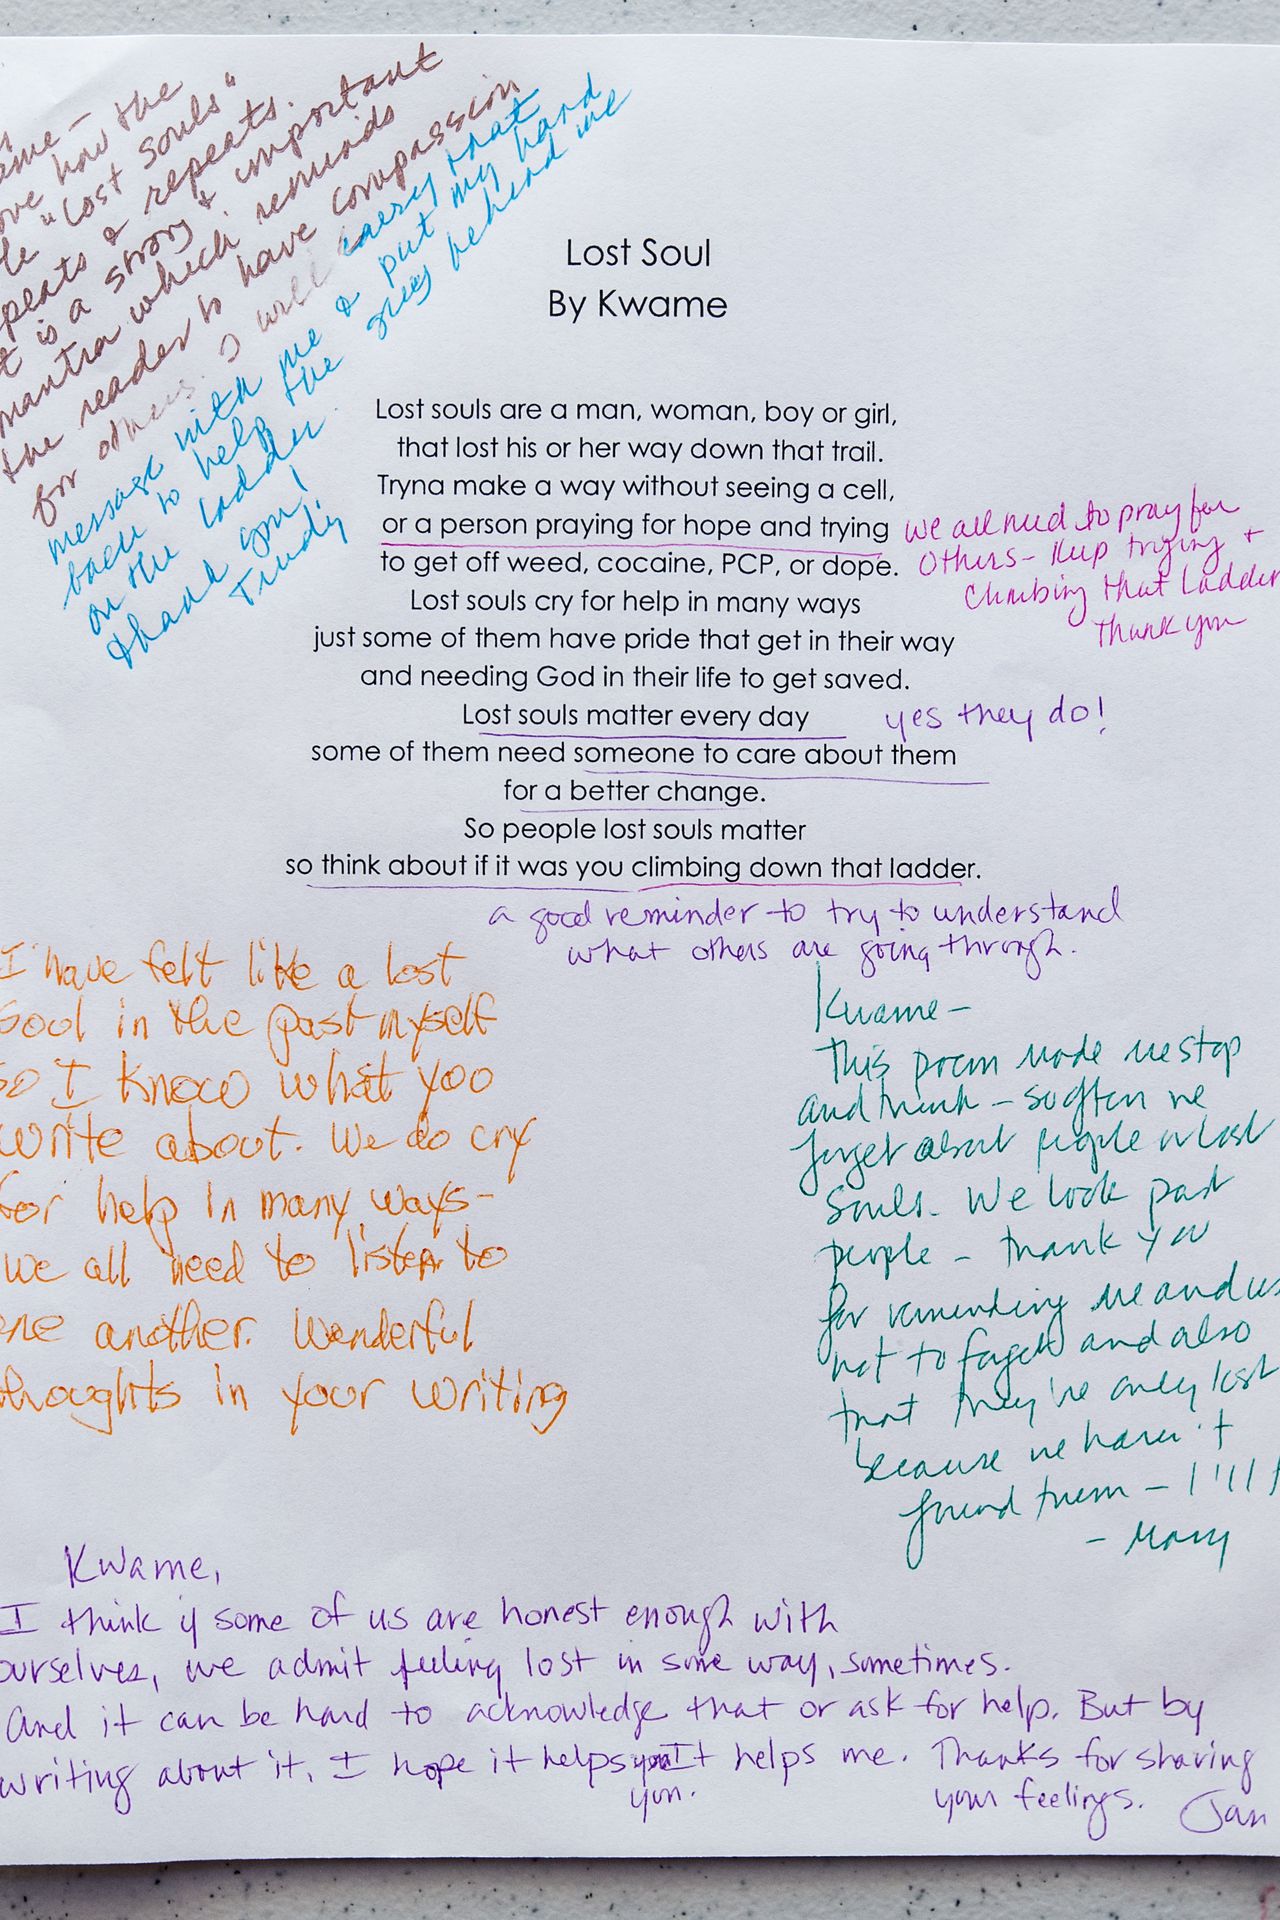 how the
"Lost Souls"
& repeats.
is a strong & important
mantra which reminds
the reader to have compassion
for others. I will carry that
message with me & put my hand
back to help the guy behind me
on the ladder.
thank you!
Trudi
Lost Soul
By Kwame
Lost souls are a man, woman, boy or girl,
that lost his or her way down that trail.
Tryna make a way without seeing a cell,
or a person praying for hope and trying
to get off weed, cocaine, PCP, or dope.
Lost souls cry for help in many ways
just some of them have pride that get in their way
and needing God in their life to get saved.
Lost souls matter every day
some of them need someone to care about them
for a better change.
So people lost souls matter
so think about if it was you climbing down that ladder.
we all need to pray for
others - Keep trying +
climbing that ladder
Thank you
yes they do!
a good reminder to try to understand
what others are going through.
I have felt like a lost
Soul in the past myself
so I know what you
write about. We do cry
for help in many ways -
we all need to listen to
one another. Wonderful
thoughts in your writing
Kwame -
This poem made me stop
and think - so often we
forget about people lost
souls. We look past
people - thank you
for reminding me and us
not to forget and also
that they're only lost
because we haven't
found them - I'll
- Mary
Kwame,
I think if some of us are honest enough with
ourselves, we admit feeling lost in some way, sometimes.
And it can be hard to acknowledge that or ask for help. But by
writing about it, I hope it helps you. It helps me. Thanks for sharing
your feelings. Jan